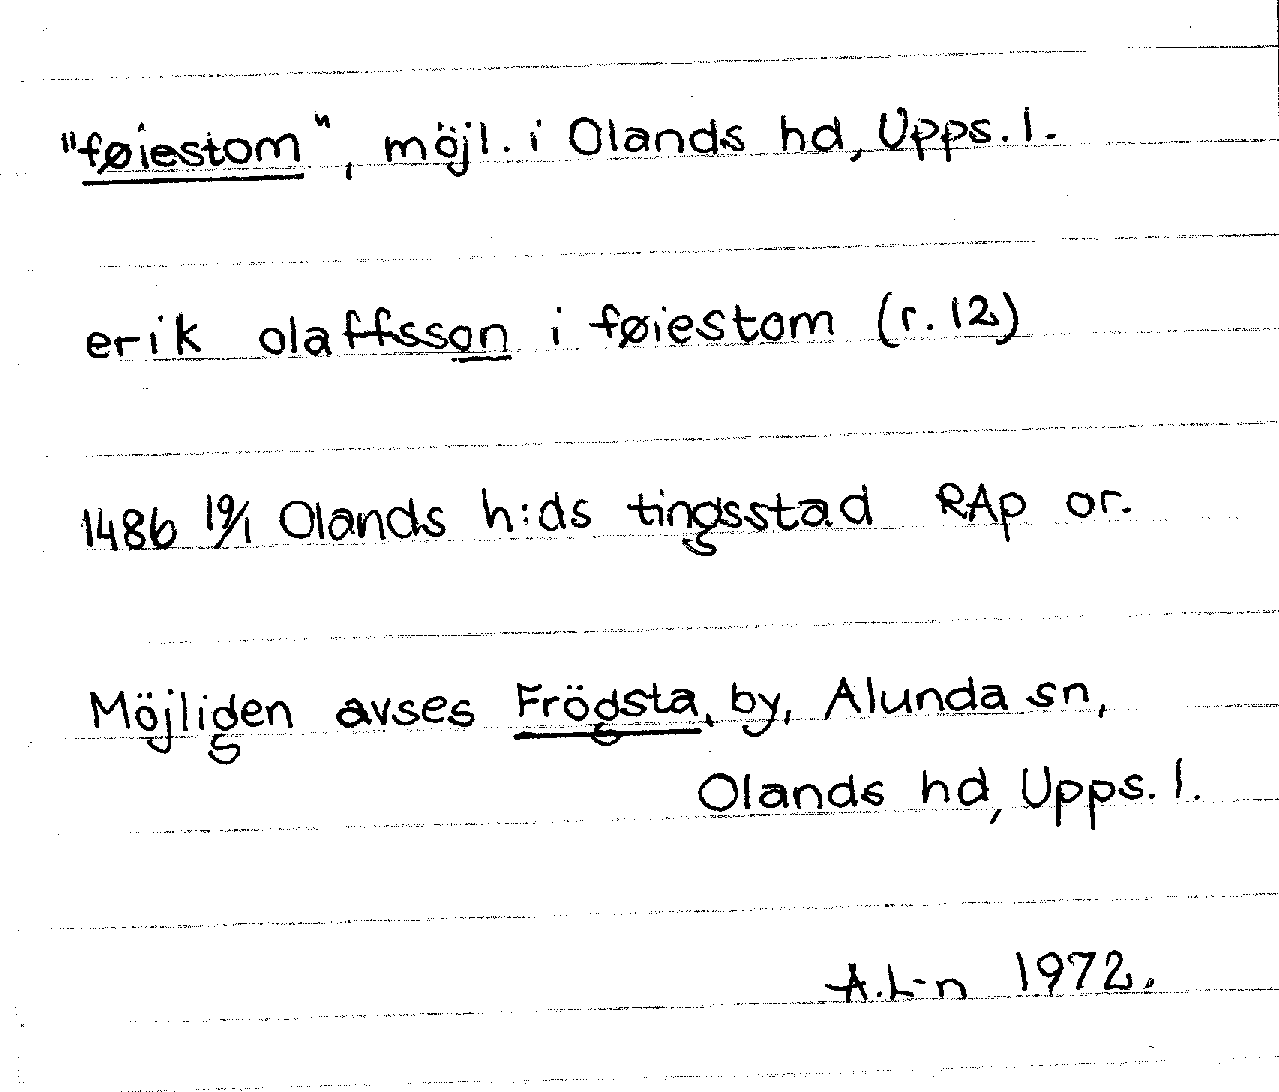 "føiestom", möjl. i Olands hd, Upps. l.
erik olaffsson i føiestom (r. 12)
1486 19/1 Olands h:ds tingsstad RAp or.
Möjligen avses Frögsta, by, Alunda sn,
Olands hd, Upps. l.
A.L-n 1972.